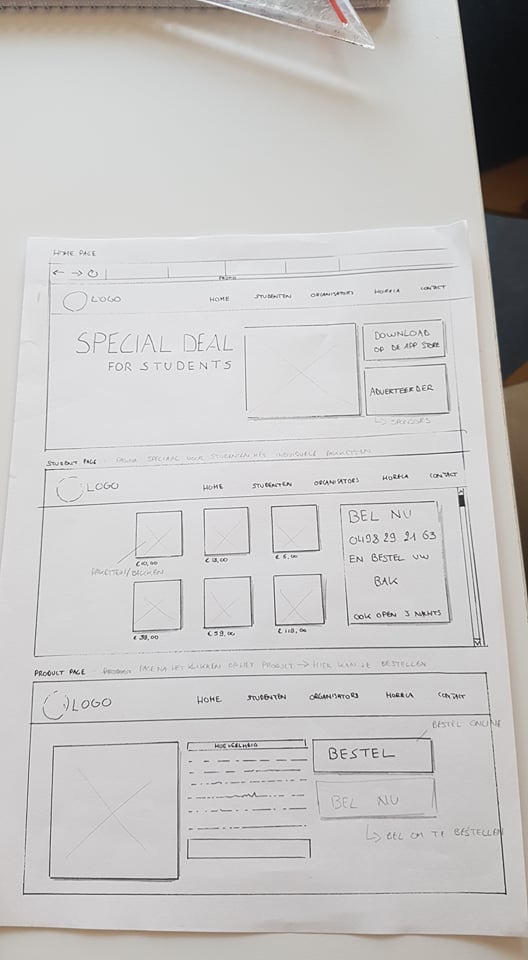 HOME PAGE
LOGO
HOME STUDENTEN ORGANISATORS HORECA CONTACT
SPECIAL DEAL
FOR STUDENTS
DOWNLOAD
OP DE APP STORE
ADVERTEERDER
↳ SPONSORS
STUDENT PAGE - PAGINA SPECIAAL VOOR STUDENTEN MET INDIVIDUELE PAKKETTEN
LOGO
HOME STUDENTEN ORGANISATORS HORECA CONTACT
PAKETTEN/BAKKEN
€ 10,00 € 5,00
BEL NU
0498 29 21 63
EN BESTEL UW
BAK
OOK OPEN 'S NACHTS
€ 59,00
PRODUCT PAGE - PAGE NA HET KLIKKEN OP HET PRODUCT → HIER KAN JE BESTELLEN
LOGO
HOME STUDENTEN ORGANISATORS HORECA CONTACT
BESTEL ONLINE
HOEVEELHEID
BESTEL
BEL NU
↳ BEL OM TE BESTELLEN